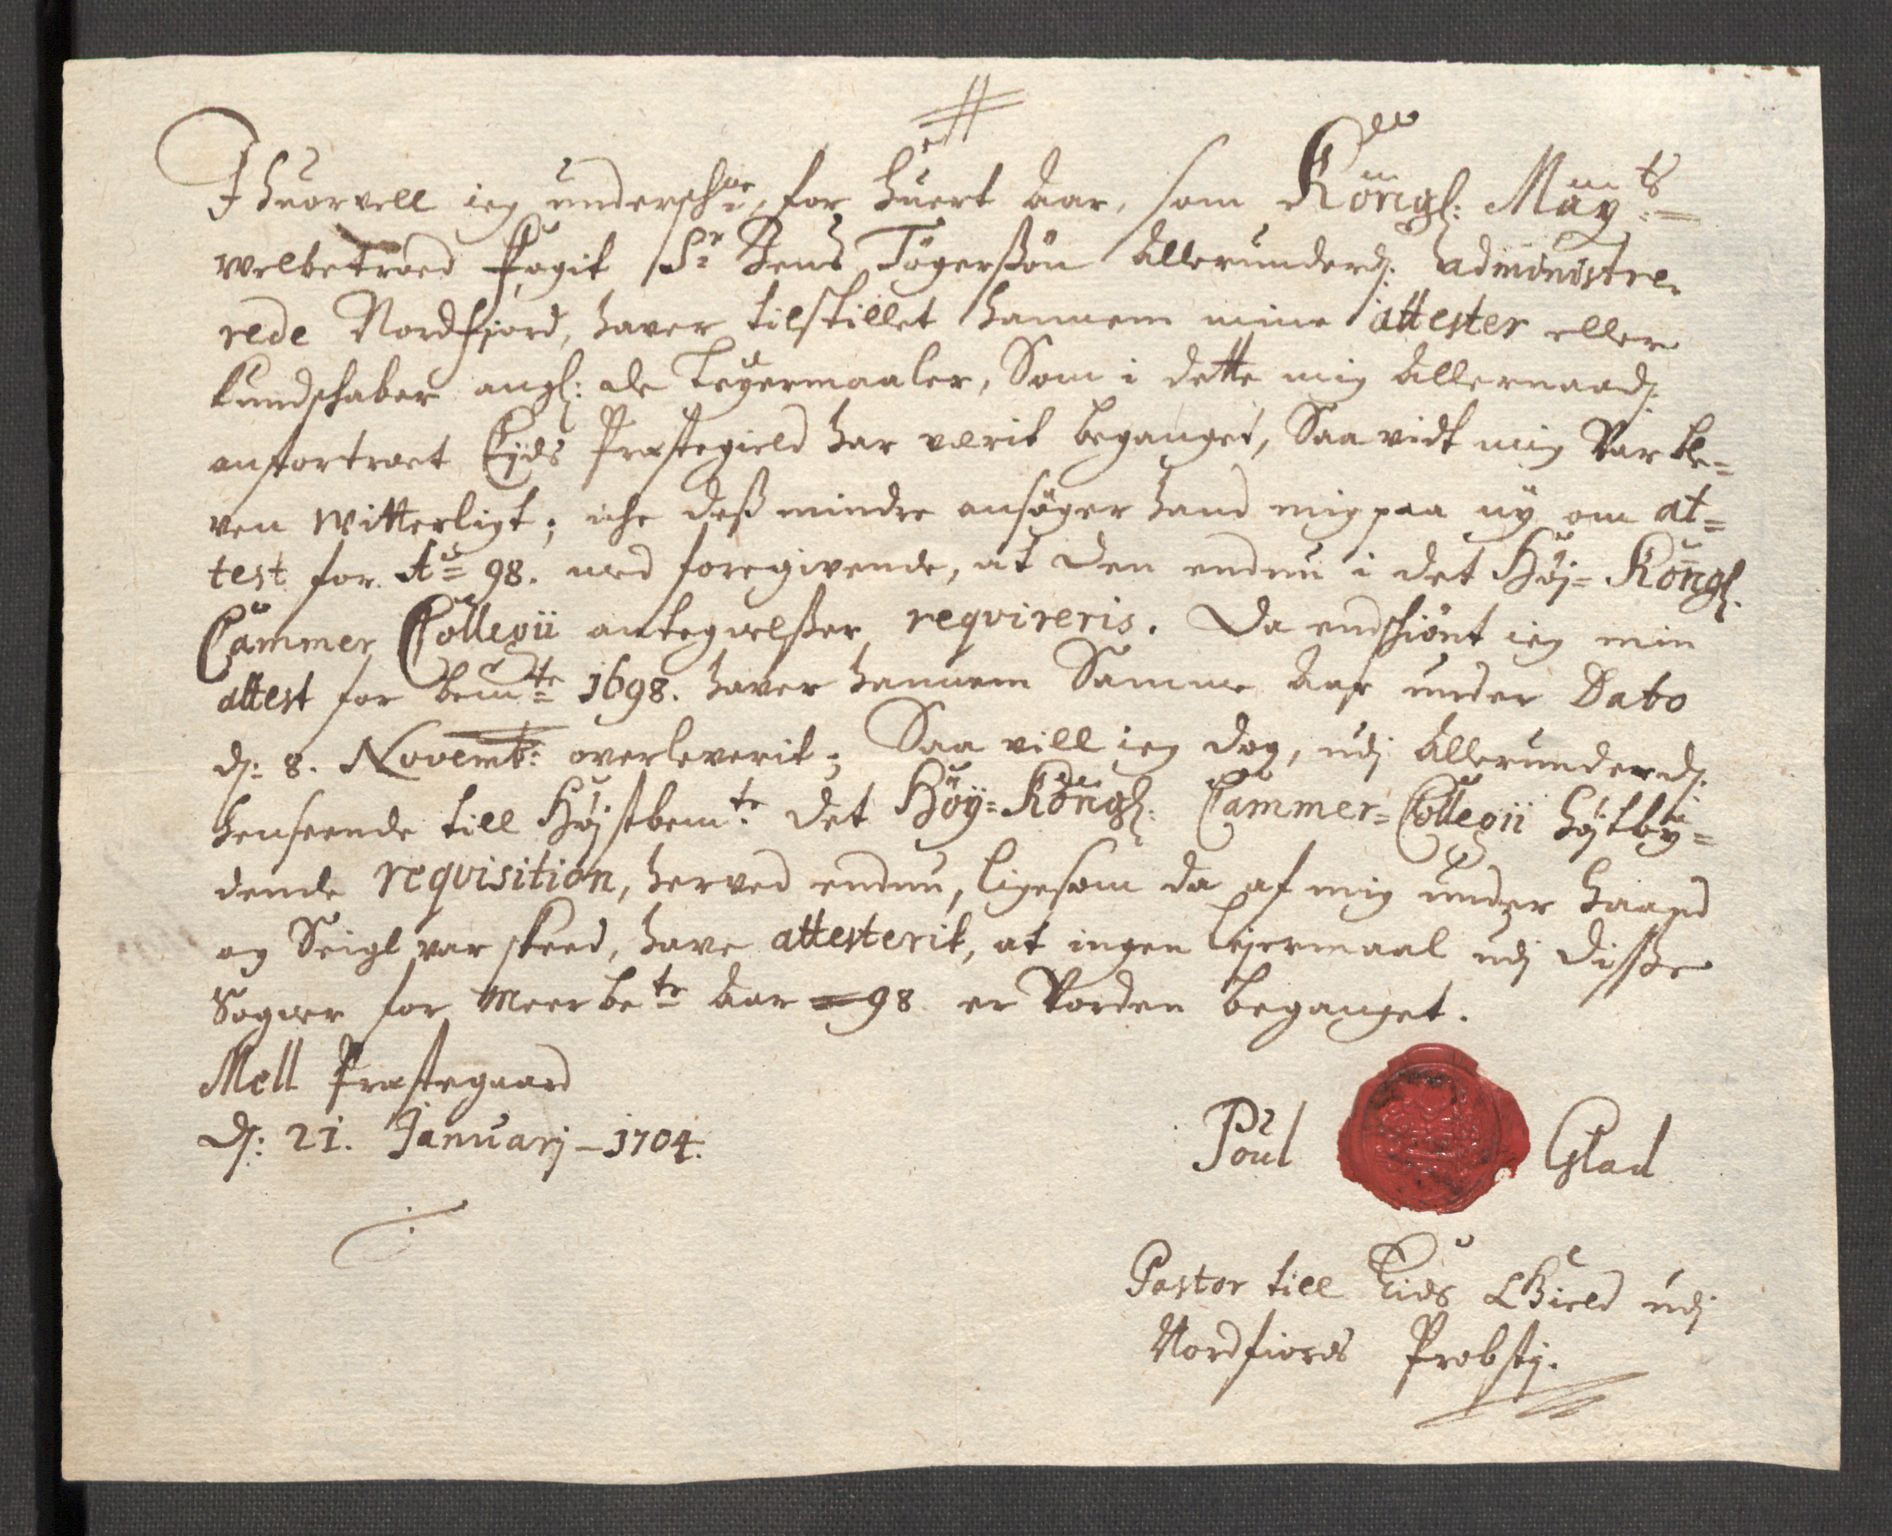 Ihuorvell ieg undersch:ne, for huert Aar, som Kongl: Mayts:
welbetroed Fogit Sr Jens Tögerßön Allerunderd: administre-
rede Nordfiord, haver tilstillet hannem mine attester eller
kundschaber angl: de Leyermaaler, Som i dette mig Allernaad:
anfortroet Eyds Præstegield har værit beganget, Saa vidt mig Var ble-
ven Witterligt; iche deß mindre ansöger hand mig paa ny om at-
test for Ao 98. med foregivende, at den endnu i det Höj-Kongl:
Cammer Collegii antegnelßer requireris. Da endschiönt ieg min
attest for bemte 1698. haver hannem Samme Aar under Dato
d: 8. Novemb: overleverit; Saa vill ieg dog, udj Allerunderd:
henseende till Höjstbemte det Höy-Kongl: Cammer-Collegii höjtby-
dende requisition, herved endnu, ligesom da af mig under haand
og Seigl var skeed, have attesterit, at ingen lejermaal udj disße
Sogner for Meerbete Aar 98 er Vorden beganget.
Mell Præstegaard
d: 21. Januarj-1704.
Poul Glad
Pastor till Eids Gield udj
Nordfiords Probstj.